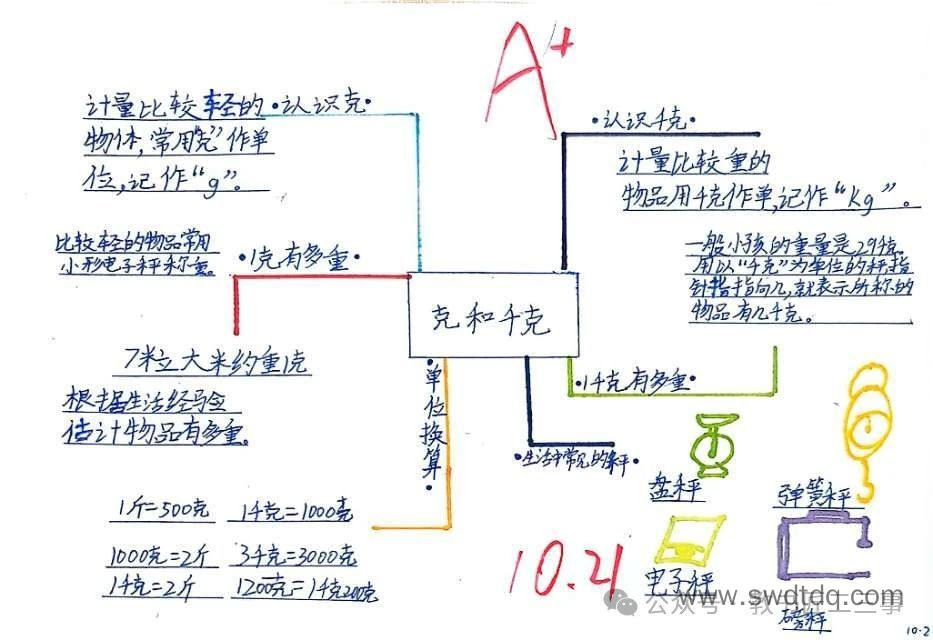 A+
计量比较轻的
物体,常用“克”作单
位,记作“g”。
·认识克·
比较轻的物品常用
小形电子秤称量。
·1克有多重·
7米立大米约重1克
根据生活经验
估计物品有多重。
克和千克
·单位换算·
1斤=500克 1千克=1000克
1000克=2斤 3千克=3000克
1千克=2斤 1200克=1千克200克
·认识千克·
计量比较重的
物品用千克作单,记作“Kg”。
一般小孩的重量是29千克。
用以“千克”为单位的秤,指
针指向几,就表示所称的
物品有几千克。
·1千克有多重·
·生活中常见的秤·
盘秤
弹簧秤
电子秤
磅秤
10.21
www.swdtdq.com
10-2